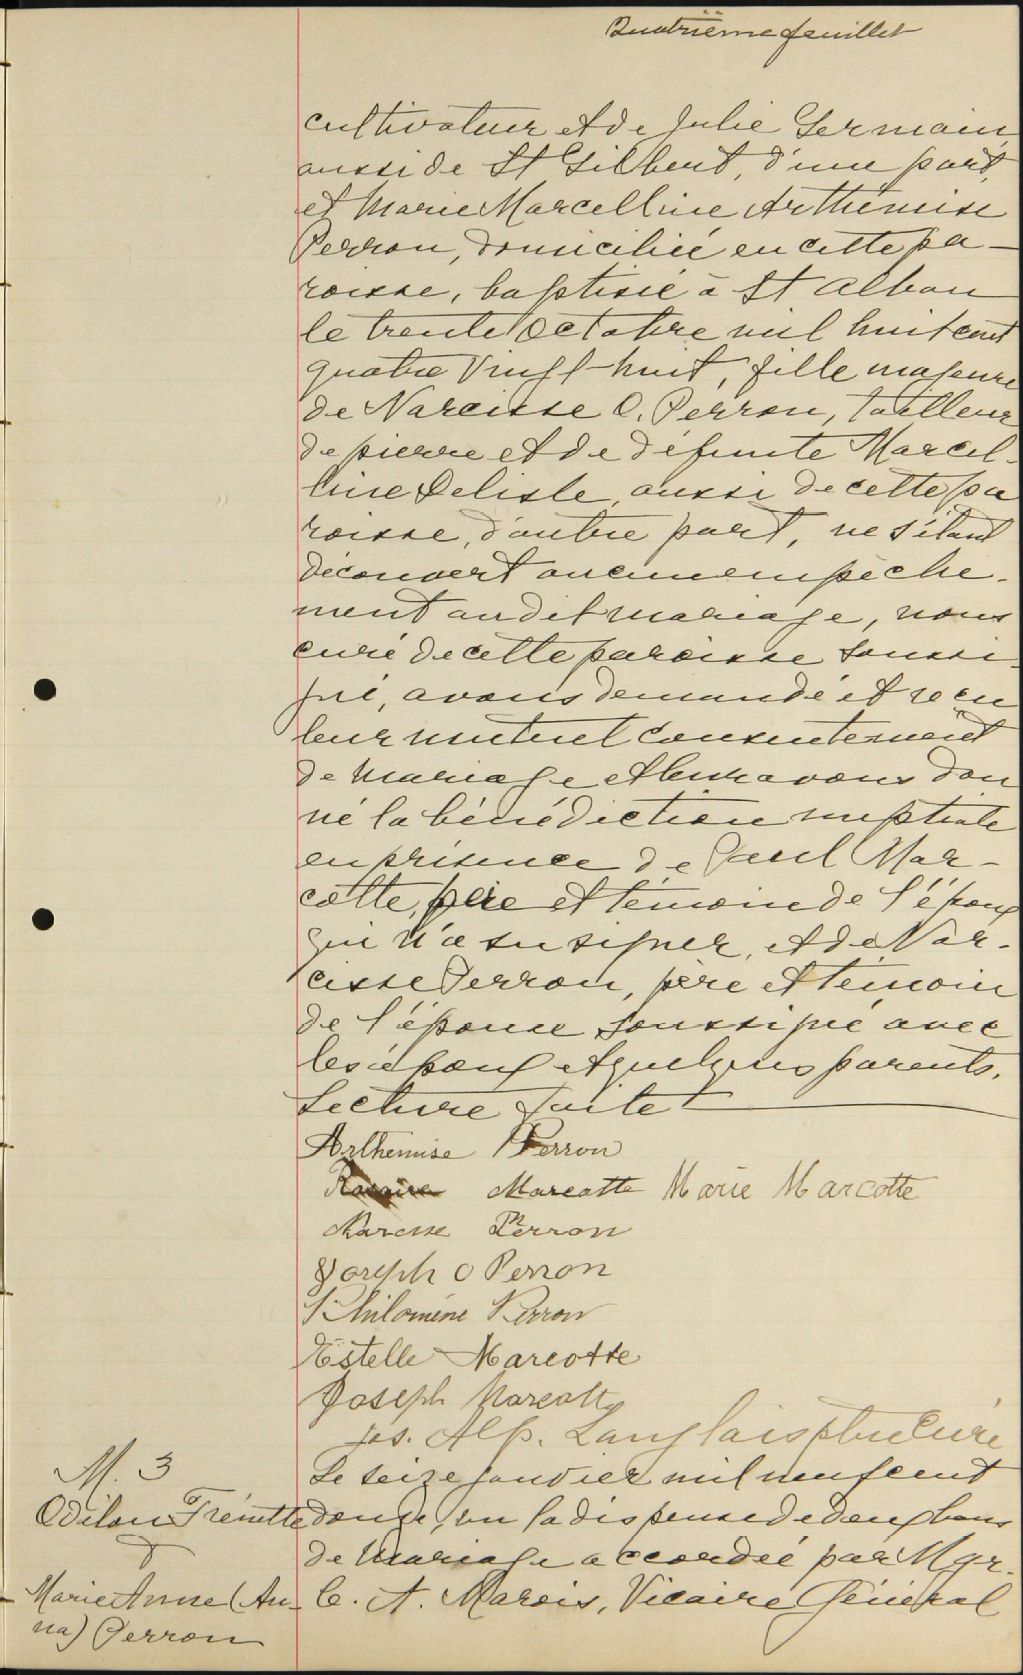 Quatrième feuillet
cultivateur et de Julie Germain,
aussi de St Gilbert, d'une part,
et Marie Marcelline Arthémise
Perron, domiciliée en cette pa-
roisse, baptisée à St Alban
le trente Octobre mil huit cent
quatre vingt-huit, fille majeure
de Narcisse O. Perron, tailleur
de pierre et de défunte Marcel-
line Delisle, aussi de cette pa
roisse, d'autre part, ne s'étant
découvert aucun empêche-
ment au dit mariage, nous
curé de cette paroisse soussi-
gné, avons demandé et reçu
leur mutuel consentement
de mariage et leur avons don
né la bénédiction nuptiale
en présence de Paul Mar-
cotte, père et témoin de l'époux
qui n'a su signer, et de Nar-
cisse Perron, père et témoin
de l'épouse soussigné avec
les époux et quelques parents.
Lecture faite
Arthemise Perron
Rosaire Marcotte Marie Marcotte
Narcisse Perron
Joseph O Perron
Philomène Perron
Estelle Marcotte
Joseph Marcotte
Jos. Alp. Langlais ptre Curé
M. 3
Odilon Frénette
&
Marie Anne (An-
na) Perron
Le seize janvier mil neuf cent
douze, vu la dispense de deux bans
de mariage accordée par Mgr.
C. A. Marois, Vicaire Général